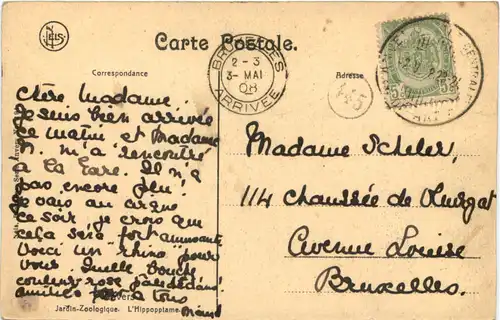 NELS
Carte Postale.
Correspondance
Adresse
BRUXELLES
2 - 3
3 - MAI
08
ARRIVÉE
145
Chère Madame,
Je suis bien arrivée
ce matin et Madame
N. m'a rencontré
à la Gare. Il n'a
pas encore plu!
Je vais au cirque
ce soir, je crois que
cela sera fort amusante
Voici un "rhino" pour
vous. Quelle bouche
couleur rose pâle dedans!
amitiés à tous
Maud
Madame Scheler,
114 Chaussée de Vleurgat
Avenue Louise
Bruxelles.
Anvers
Jardin-Zoologique. L'Hippopotame.